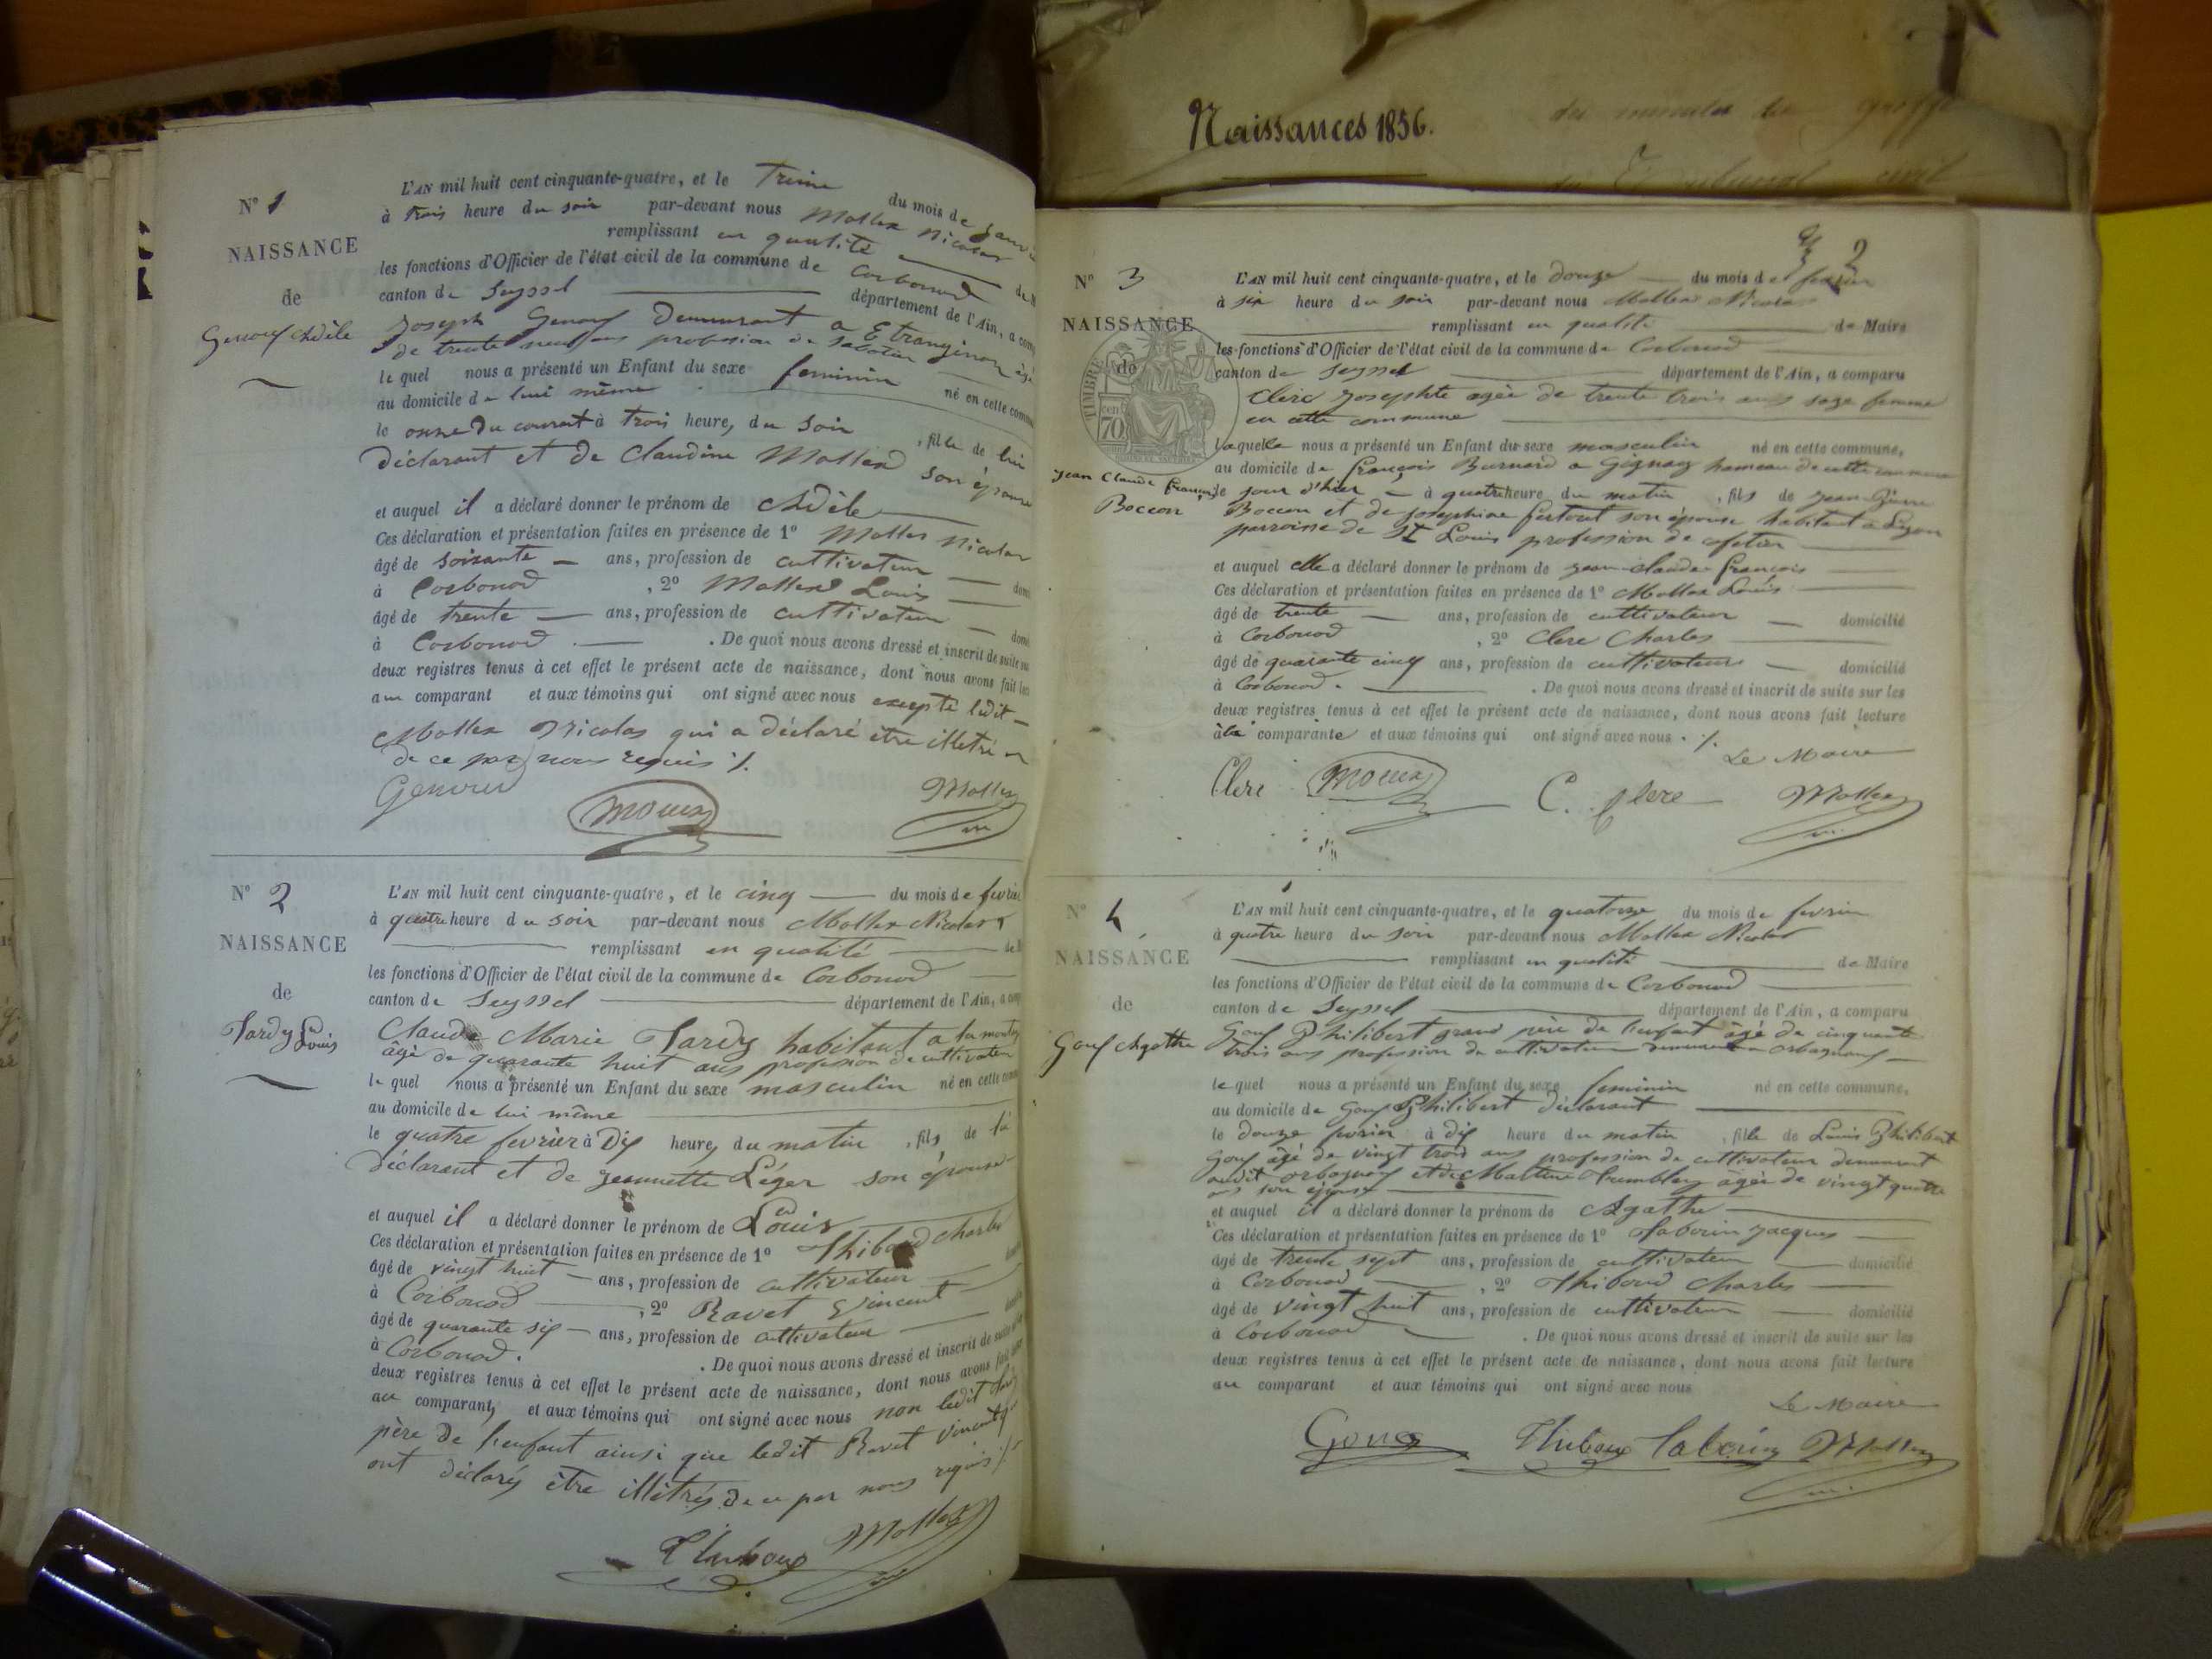 N° 1
NAISSANCE
de
Genouf Adèle
L'AN mil huit cent cinquante-quatre, et le du mois de
à trois heure du soir par-devant nous Mollex Nicolas
remplissant en qualité
les fonctions d'Officier de l'état civil de la commune de Corbonod
canton de Seyssel département de l'Ain, a
Joseph demeurant a
de trente neuf ans profession de sabotier
le quel nous a présenté un Enfant du sexe feminin né en cette
au domicile de lui même
le onze du courant à trois heure, du soir , fille de lui
déclarant et de Claudine Mollex son épouse
et auquel il a déclaré donner le prénom de Adèle
Ces déclaration et présentation faites en présence de 1° Mollex Nicolas
âgé de soixante ans, profession de cultivateur
à Corbonod , 2° Mollex Louis
âgé de trente ans, profession de cultivateur
à Corbonod . De quoi nous avons dressé et inscrit de suite
deux registres tenus à cet effet le présent acte de naissance, dont nous avons fait
au comparant et aux témoins qui ont signé avec nous excepté ledit
Mollex Nicolas qui a déclaré être illetré
de ce par nous requis ./.
Mollex
N° 2
NAISSANCE
de
Tardy Louis
L'AN mil huit cent cinquante-quatre, et le cinq du mois de fevrier
à quatre heure du soir par-devant nous Mollex Nicolas
remplissant en qualité
les fonctions d'Officier de l'état civil de la commune de Corbonod
canton de Seyssel département de l'Ain, a
Claude Marie Tardy habitant a
âgé de quarante huit ans profession de cultivateur
le quel nous a présenté un Enfant du sexe masculin né en cette
au domicile de lui même
le quatre fevrier à dix heure, du matin , fils de
déclarant et de Jeannette Léger son épouse
et auquel il a déclaré donner le prénom de Louis
Ces déclaration et présentation faites en présence de 1° Thiboud Charles
âgé de vingt huit ans, profession de cultivateur
à Corbonod , 2° Ravet Vincent
âgé de quarante six ans, profession de cultivateur
à Corbonod . De quoi nous avons dressé et inscrit de suite
deux registres tenus à cet effet le présent acte de naissance, dont nous avons fait
au comparant, et aux témoins qui ont signé avec nous non ledit
père de l'enfant ainsi que ledit Ravet Vincent
ont déclarés être illétrés de ce par nous requis ./.
Mollex
Naissances 1856.
2
N° 3
NAISSANCE
de
Jean Claude François
Boccon
TIMBRE
70
L'AN mil huit cent cinquante-quatre, et le douze du mois de
à six heure du soir par-devant nous Mollex Nicolas
remplissant en qualité de Maire
les fonctions d'Officier de l'état civil de la commune de Corbonod
canton de Seyssel département de l'Ain, a comparu
Clerc Josephte agée de trente trois ans sage femme
en cette commune
laquelle nous a présenté un Enfant du sexe masculin né en cette commune,
au domicile de François Burnard a Gignay hameau de cette commune
le jour d'hier à quatre heure du matin , fils de Jean Pierre
Boccon et de Josephine son épouse habitant a Lyon
parroisse de St Louis profession de cafetier
et auquel elle a déclaré donner le prénom de Jean Claude François
Ces déclaration et présentation faites en présence de 1° Mollex Louis
âgé de trente ans, profession de cultivateur domicilié
à Corbonod , 2° Clerc Charles
âgé de quarante cinq ans, profession de cultivateur domicilié
à Corbonod . De quoi nous avons dressé et inscrit de suite sur les
deux registres tenus à cet effet le présent acte de naissance, dont nous avons fait lecture
à la comparante et aux témoins qui ont signé avec nous ./.
Le Maire
Clerc C. Clerc Mollex
N° 4
NAISSANCE
de
Gouf Agathe
L'AN mil huit cent cinquante-quatre, et le quatorze du mois de fevrier
à quatre heure du soir par-devant nous Mollex Nicolas
remplissant en qualité de Maire
les fonctions d'Officier de l'état civil de la commune de Corbonod
canton de Seyssel département de l'Ain, a comparu
Gouf Philibert grand père de l'enfant âgé de cinquante
trois ans profession de cultivateur demeurant a Orbagnoux
le quel nous a présenté un Enfant du sexe feminin né en cette commune,
au domicile de Gouf Philibert déclarant
le douze fevrier à dix heure du matin , fille de Louis Philibert
Gouf âgé de vingt trois ans profession de cultivateur demeurant
audit Orbagnoux et de âgée de vingt quatre
ans son épouse
et auquel il a déclaré donner le prénom de Agathe
Ces déclaration et présentation faites en présence de 1° Tabouin Jacques
âgé de trente sept ans, profession de cultivateur domicilié
à Corbonod , 2° Thiboud Charles
âgé de vingt huit ans, profession de cultivateur domicilié
à Corbonod . De quoi nous avons dressé et inscrit de suite sur les
deux registres tenus à cet effet le présent acte de naissance, dont nous avons fait lecture
au comparant et aux témoins qui ont signé avec nous
Le Maire
Mollex